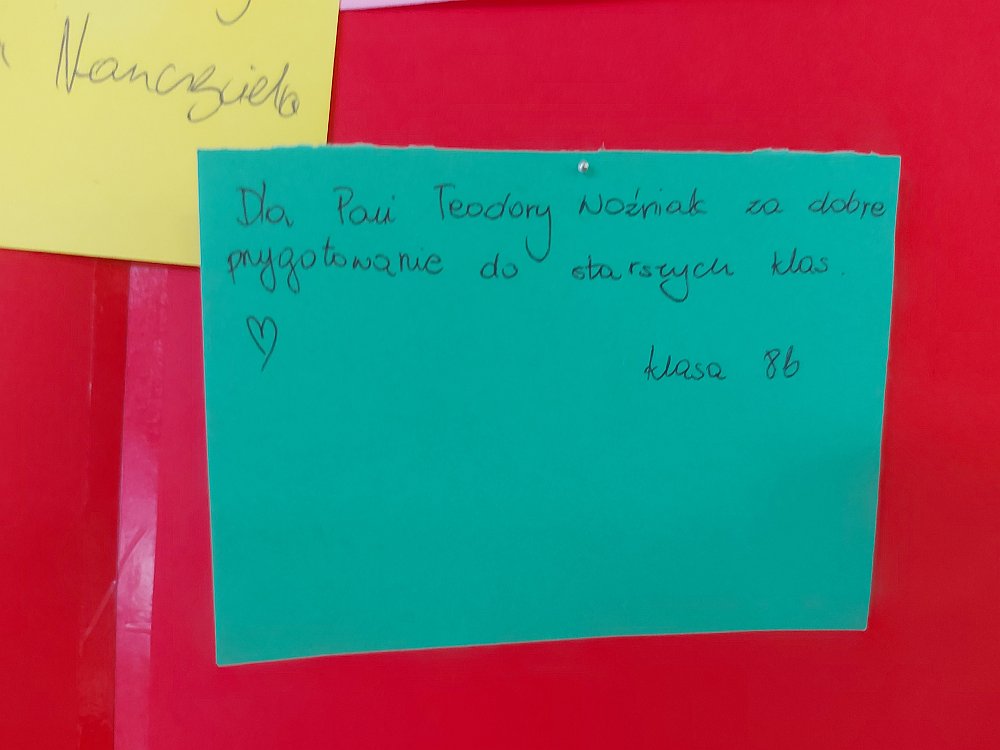 Nauczyciela
Dla Pani Teodory Woźniak za dobre
przygotowanie do starszych klas.
♡
klasa 8b